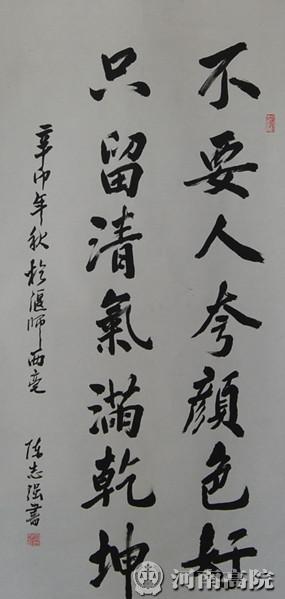 不要人夸顔色好
只留清氣滿乾坤
辛卯年秋於偃師西亳
陈志强書
河南高院